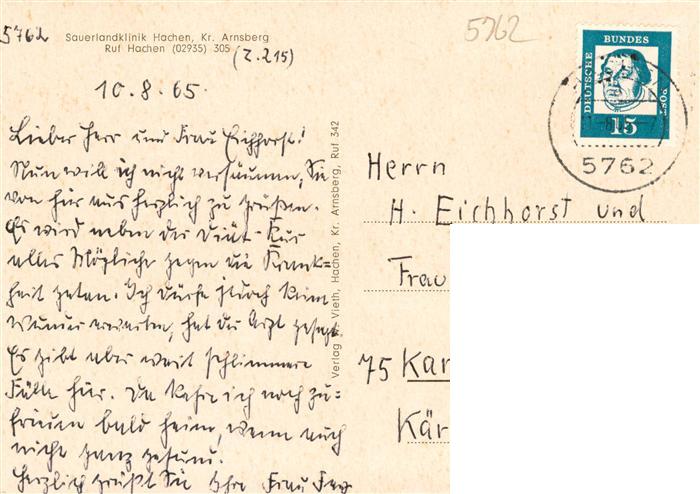 5762
Sauerlandklinik Hachen, Kr. Arnsberg
Ruf Hachen (02935) 305
(Z. 215)
10. 8. 65.
Lieber Herr und Frau Eichhorst!
Nun will ich nicht versäumen, Sie
von hier aus herzlich zu grüßen.
Es wird neben der Diät-Kur
alles Mögliche gegen die Krank=
heit getan. Ich dürfe jedoch kein
Wunder erwarten, hat der Arzt gesagt.
Es gibt aber weit schlimmere
Fälle hier. Da kehre ich noch zu=
frieden bald heim, wenn auch
nicht ganz gesund.
Herzlich grüßt Sie Ihre Frau
Verlag Vieth, Hachen, Kr. Arnsberg, Ruf 342
5762
DEUTSCHE
BUNDES
POST
15
5762
Herrn
H. Eichhorst und
Frau
75 Kar
Kär